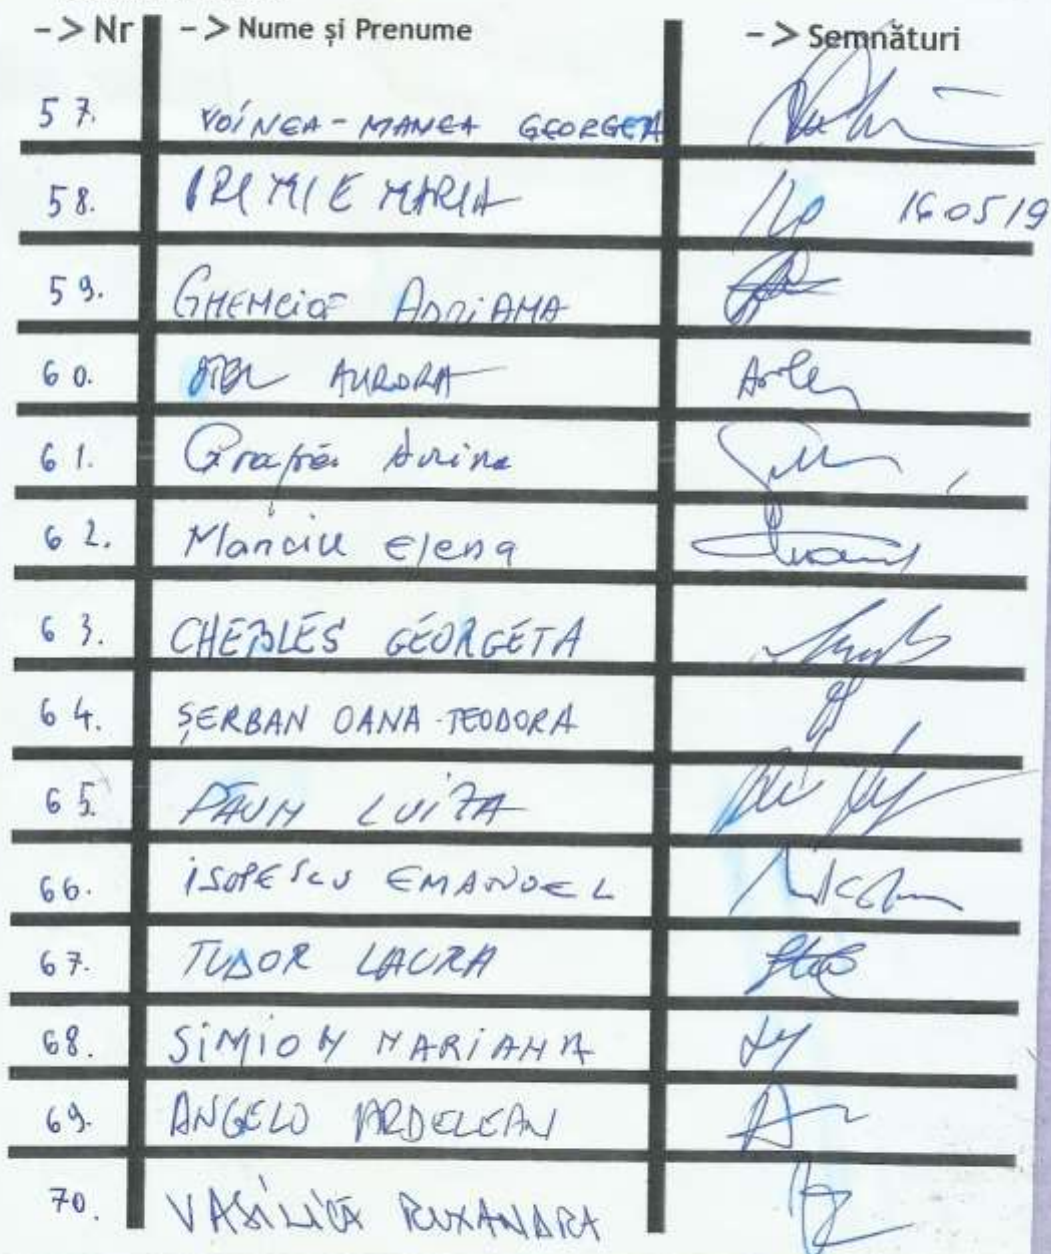 -> Nr -> Nume și Prenume -> Semnături
57. VOINEA-MANEA GEORGETA
58. IRIMIE MARIA 16 05 19
59. ADRIANA
60. AURORA
61.
62. Manciu Elena
63. CHEBLES GEORGETA
64. ȘERBAN OANA-TEODORA
65. PAUN LUIZA
66. ISOPESCU EMANOEL
67. TUDOR LAURA
68. SIMION MARIANA
69. ANGELO ARDELEAN
70. VASILICĂ RUXANDRA